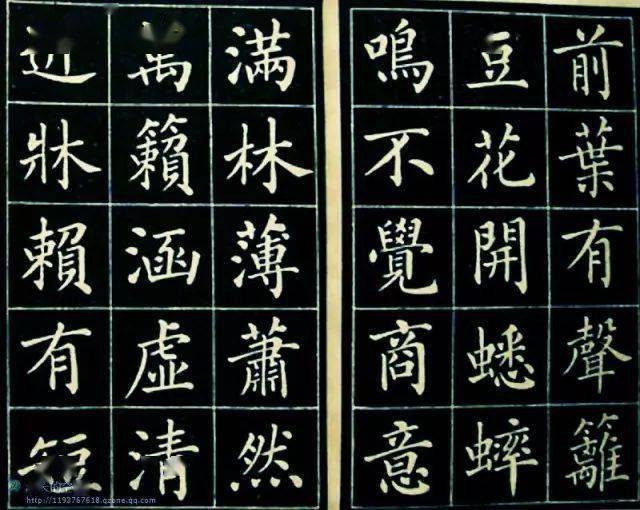 前葉有聲籬
豆花開蟋蟀
鳴不覺商意
滿林薄蕭然
萬籟涵虛清
近牀賴有短
http://1193767618.qzone.qq.com